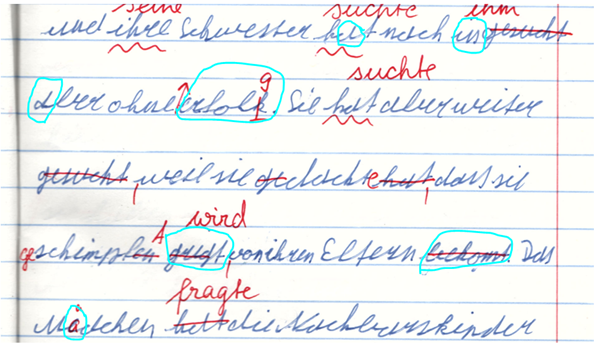 seine suchte ihm
und ihre Schwester hat nach in gesucht
suchte
aber ohne erfolk. Sie hat aber weiter
g
gesucht, weil sie gedachte hat, dass sie
wird
geschimpfen von ihren Eltern bekomt. Das
fragte
Mädchen hat die Nachbarskinder